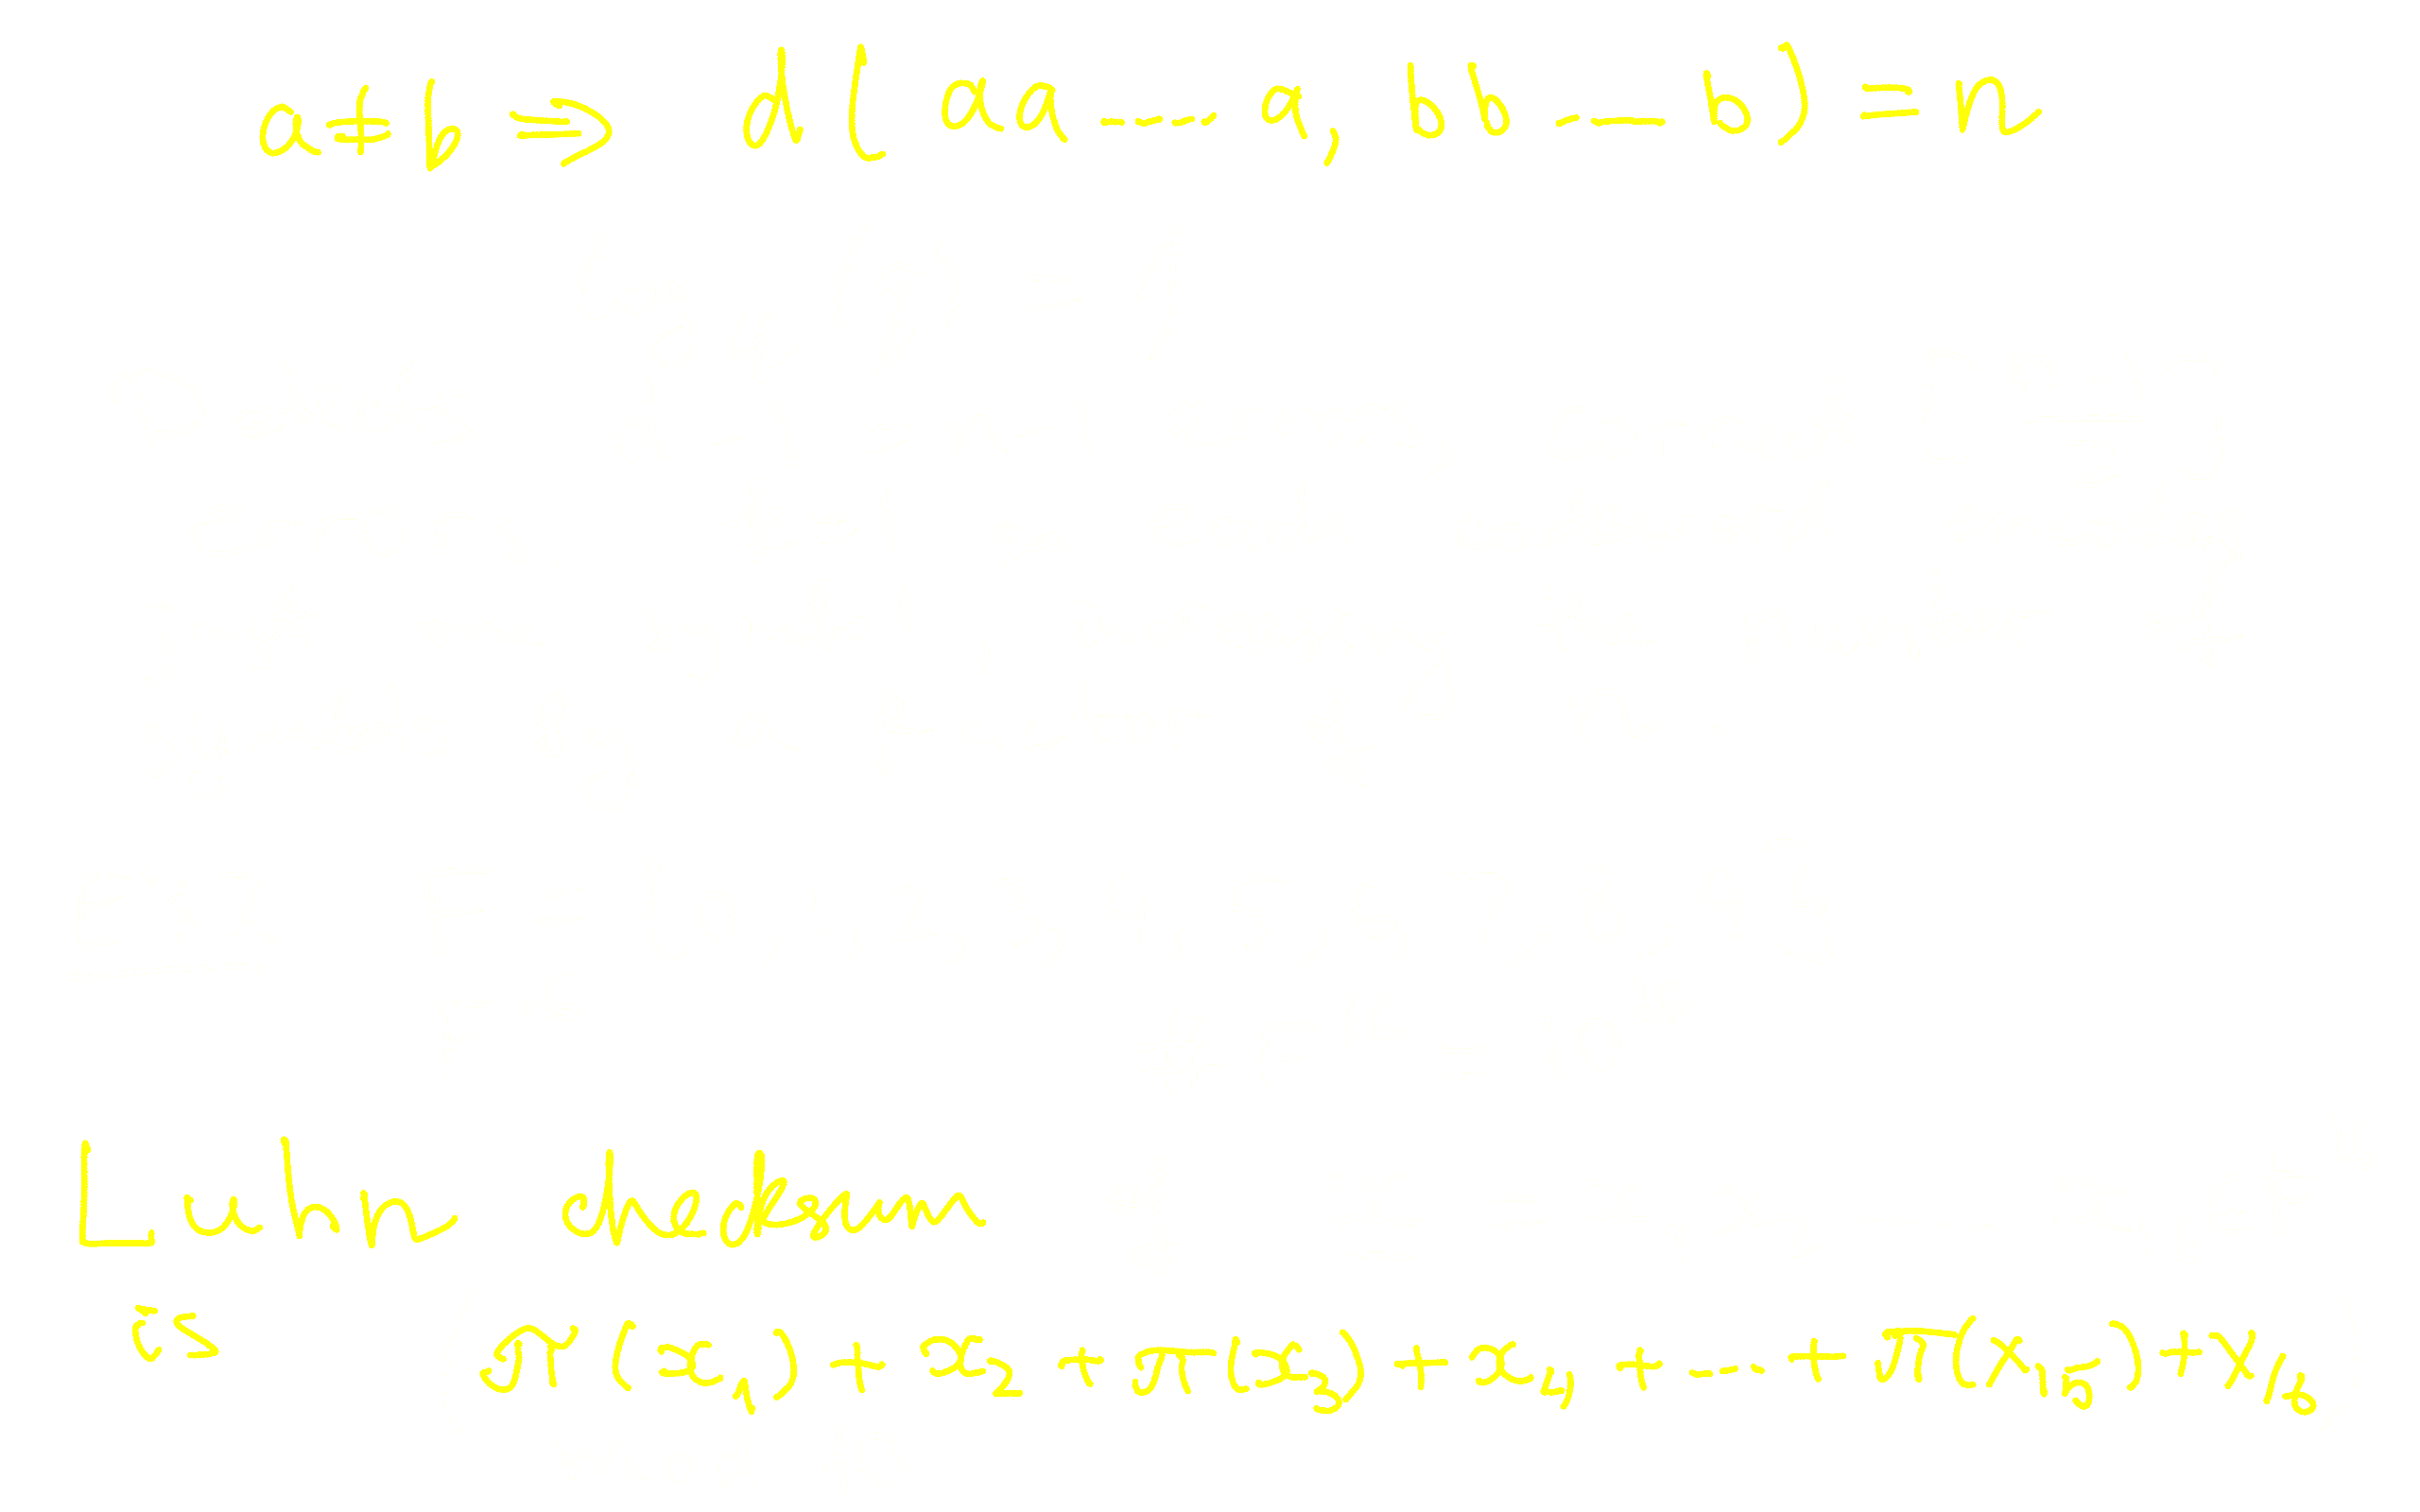 a ≠ b ⇒ d( aa ---- a, bb --- b ) = n
Luhn checksum
is π(x₁) + x₂ + π(x₃) + x₄ + --- + π(x₁₅) + x₁₆